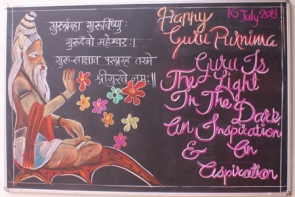 गुरुर्ब्रह्मा गुरुर्विष्णुः
गुरुर्देवो महेश्वरः।
गुरु साक्षात परब्रह्म तस्मै
श्रीगुरवे नमः॥
Happy
Guru Purnima
16 July 2019
Guru Is
The Light
In The Dark
An Inspiration
& An
Aspiration